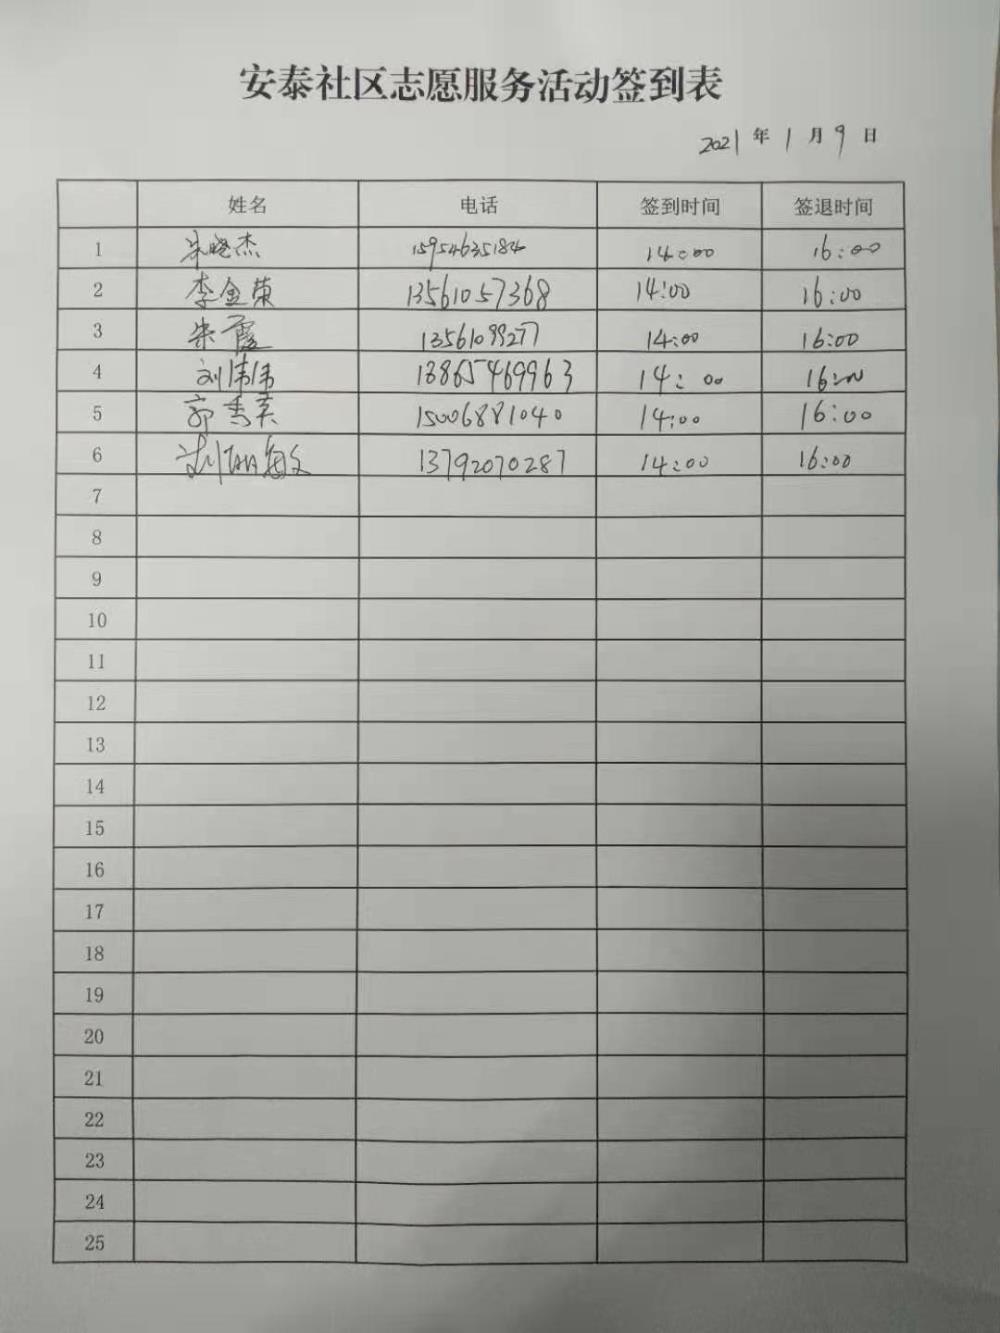 安泰社区志愿服务活动签到表
2021年1月9日
姓名 电话 签到时间 签退时间
1 朱晓杰 15954635184 14:00 16:00
2 李金荣 13561057368 14:00 16:00
3 朱霞 13561099277 14:00 16:00
4 刘伟伟 13865469963 14:00 16:00
5 郭秀英 15006881040 14:00 16:00
6 刘丽敏 13792070287 14:00 16:00
7
8
9
10
11
12
13
14
15
16
17
18
19
20
21
22
23
24
25